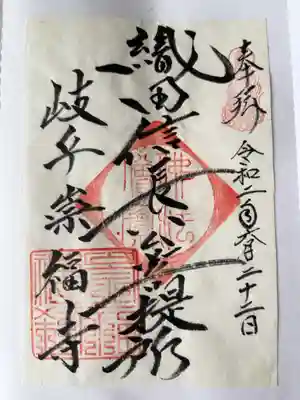 奉拝 令和二年六月二十二日
織田信長公菩提所
岐阜崇福寺
佛法僧寳